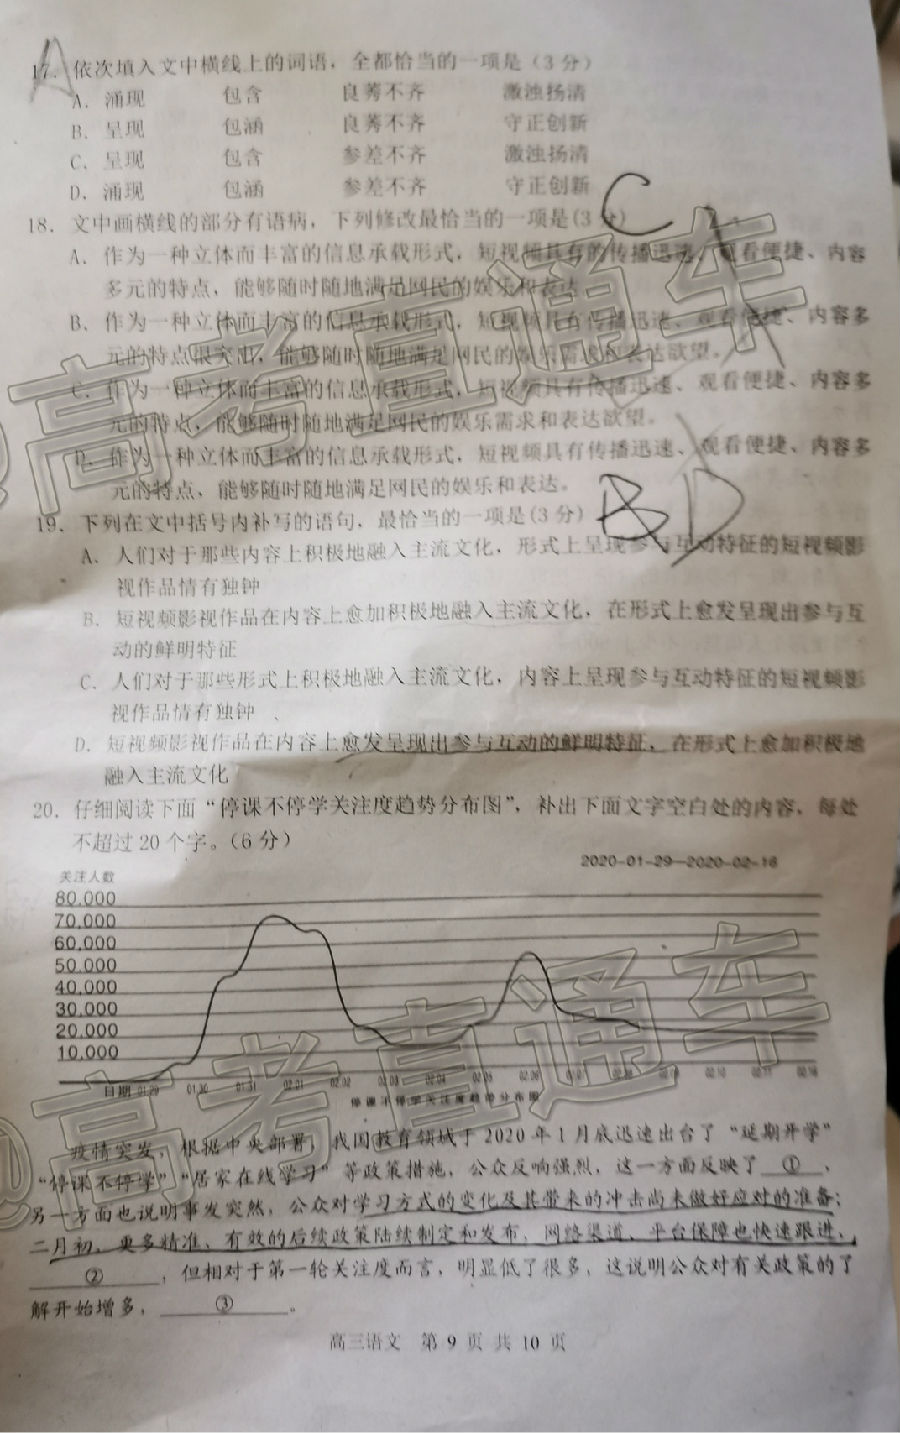 A
17. 依次填入文中横线上的词语，全都恰当的一项是（3分）
A. 涌现 包含 良莠不齐 激浊扬清
B. 呈现 包涵 良莠不齐 守正创新
C. 呈现 包含 参差不齐 激浊扬清
D. 涌现 包涵 参差不齐 守正创新
C
18. 文中画横线的部分有语病，下列修改最恰当的一项是(3分)
A. 作为一种立体而丰富的信息承载形式，短视频具有的传播迅速、观看便捷、内容
多元的特点，能够随时随地满足网民的娱乐和表达
B. 作为一种立体而丰富的信息承载形式，短视频具有传播迅速、观看便捷、内容多
元的特点很突出，能够随时随地满足网民的娱乐需求和表达欲望。
C. 作为一种立体而丰富的信息承载形式，短视频具有传播迅速、观看便捷、内容多
元的特点，能够随时随地满足网民的娱乐需求和表达欲望。
D. 作为一种立体而丰富的信息承载形式，短视频具有传播迅速、观看便捷、内容多
元的特点，能够随时随地满足网民的娱乐和表达。
19. 下列在文中括号内补写的语句，最恰当的一项是(3分)
B D
A. 人们对于那些内容上积极地融入主流文化，形式上呈现参与互动特征的短视频影
视作品情有独钟
B. 短视频影视作品在内容上愈加积极地融入主流文化，在形式上愈发呈现出参与互
动的鲜明特征
C. 人们对于那些形式上积极地融入主流文化，内容上呈现参与互动特征的短视频影
视作品情有独钟
D. 短视频影视作品在内容上愈发呈现出参与互动的鲜明特征，在形式上愈加积极地
融入主流文化
20. 仔细阅读下面“停课不停学关注度趋势分布图”，补出下面文字空白处的内容，每处
不超过20个字。（6分）
2020-01-29—2020-02-16
关注人数
80,000
70,000
60,000
50,000
40,000
30,000
20,000
10,000
日期 01.29 01.30 01.31 02.01 02.02 02.03 02.04 02.05 02.06
停课不停学关注度趋势分布图
疫情突发，根据中央部署，我国教育领域于2020年1月底迅速出台了“延期开学”
“停课不停学”“居家在线学习”等政策措施，公众反响强烈，这一方面反映了 ① ，
另一方面也说明事发突然，公众对学习方式的变化及其带来的冲击尚未做好应对的准备；
二月初，更多精准、有效的后续政策陆续制定和发布，网络渠道、平台保障也快速跟进，
② ，但相对于第一轮关注度而言，明显低了很多，这说明公众对有关政策的了
解开始增多， ③ 。
高三语文 第 9 页 共 10 页
@高考直通车
@高考直通车